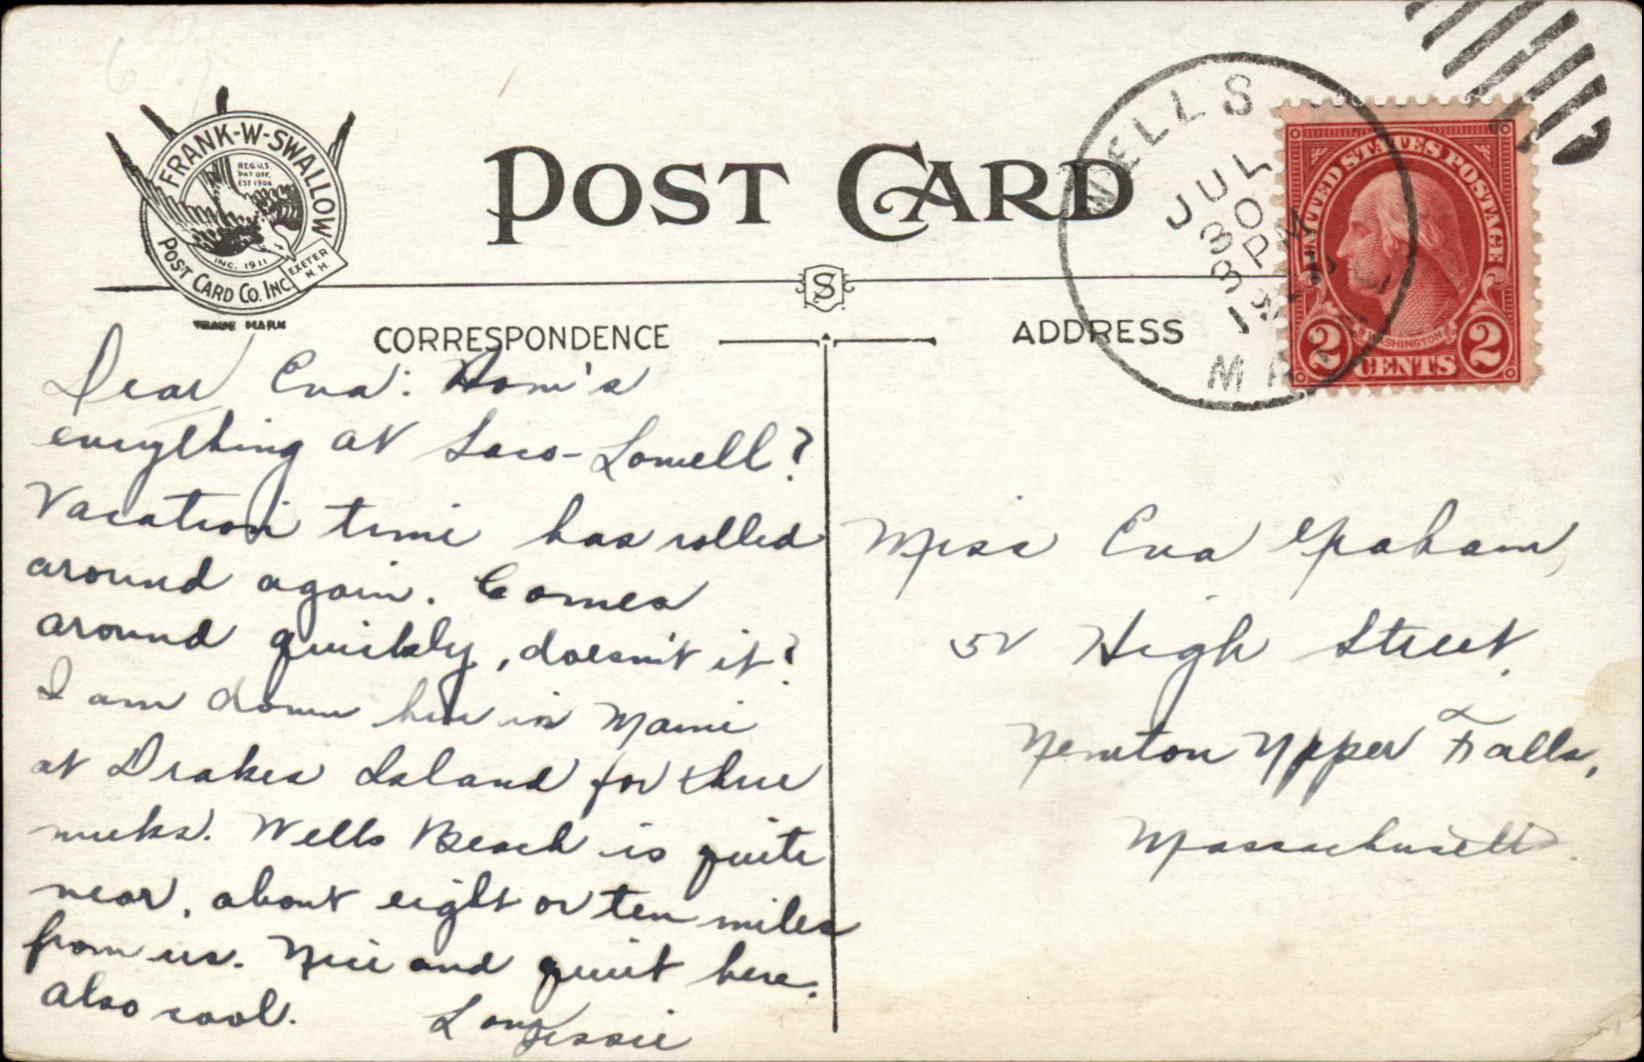 FRANK-W-SWALLOW
REG. U.S.
PAT. OFF.
EST 1904
INC. 1911
EXETER
N.H.
POST CARD CO. INC
TRADE MARK
POST CARD
WELLS
JUL
30
8 PM
MA
UNITED STATES POSTAGE
WASHINGTON
2 CENTS 2
S
CORRESPONDENCE
ADDRESS
Dear Eva: How's
everything at Saco-Lowell?
Vacation time has rolled
around again. Comes
around quickly, doesn't it?
I am down here in Maine
at Drakes Island for three
weeks. Wells Beach is quite
near, about eight or ten miles
from us. Nice and quiet here.
also cool.
Love Jessie
Miss Eva Graham,
52 High Street,
Newton Upper Falls,
Massachusetts.